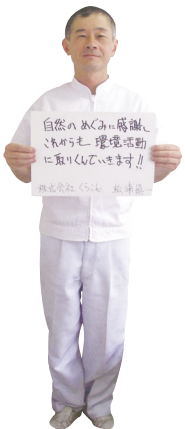 自然のめぐみに感謝し
これからも環境活動
に取りくんでいきます!!
株式会社くらこん